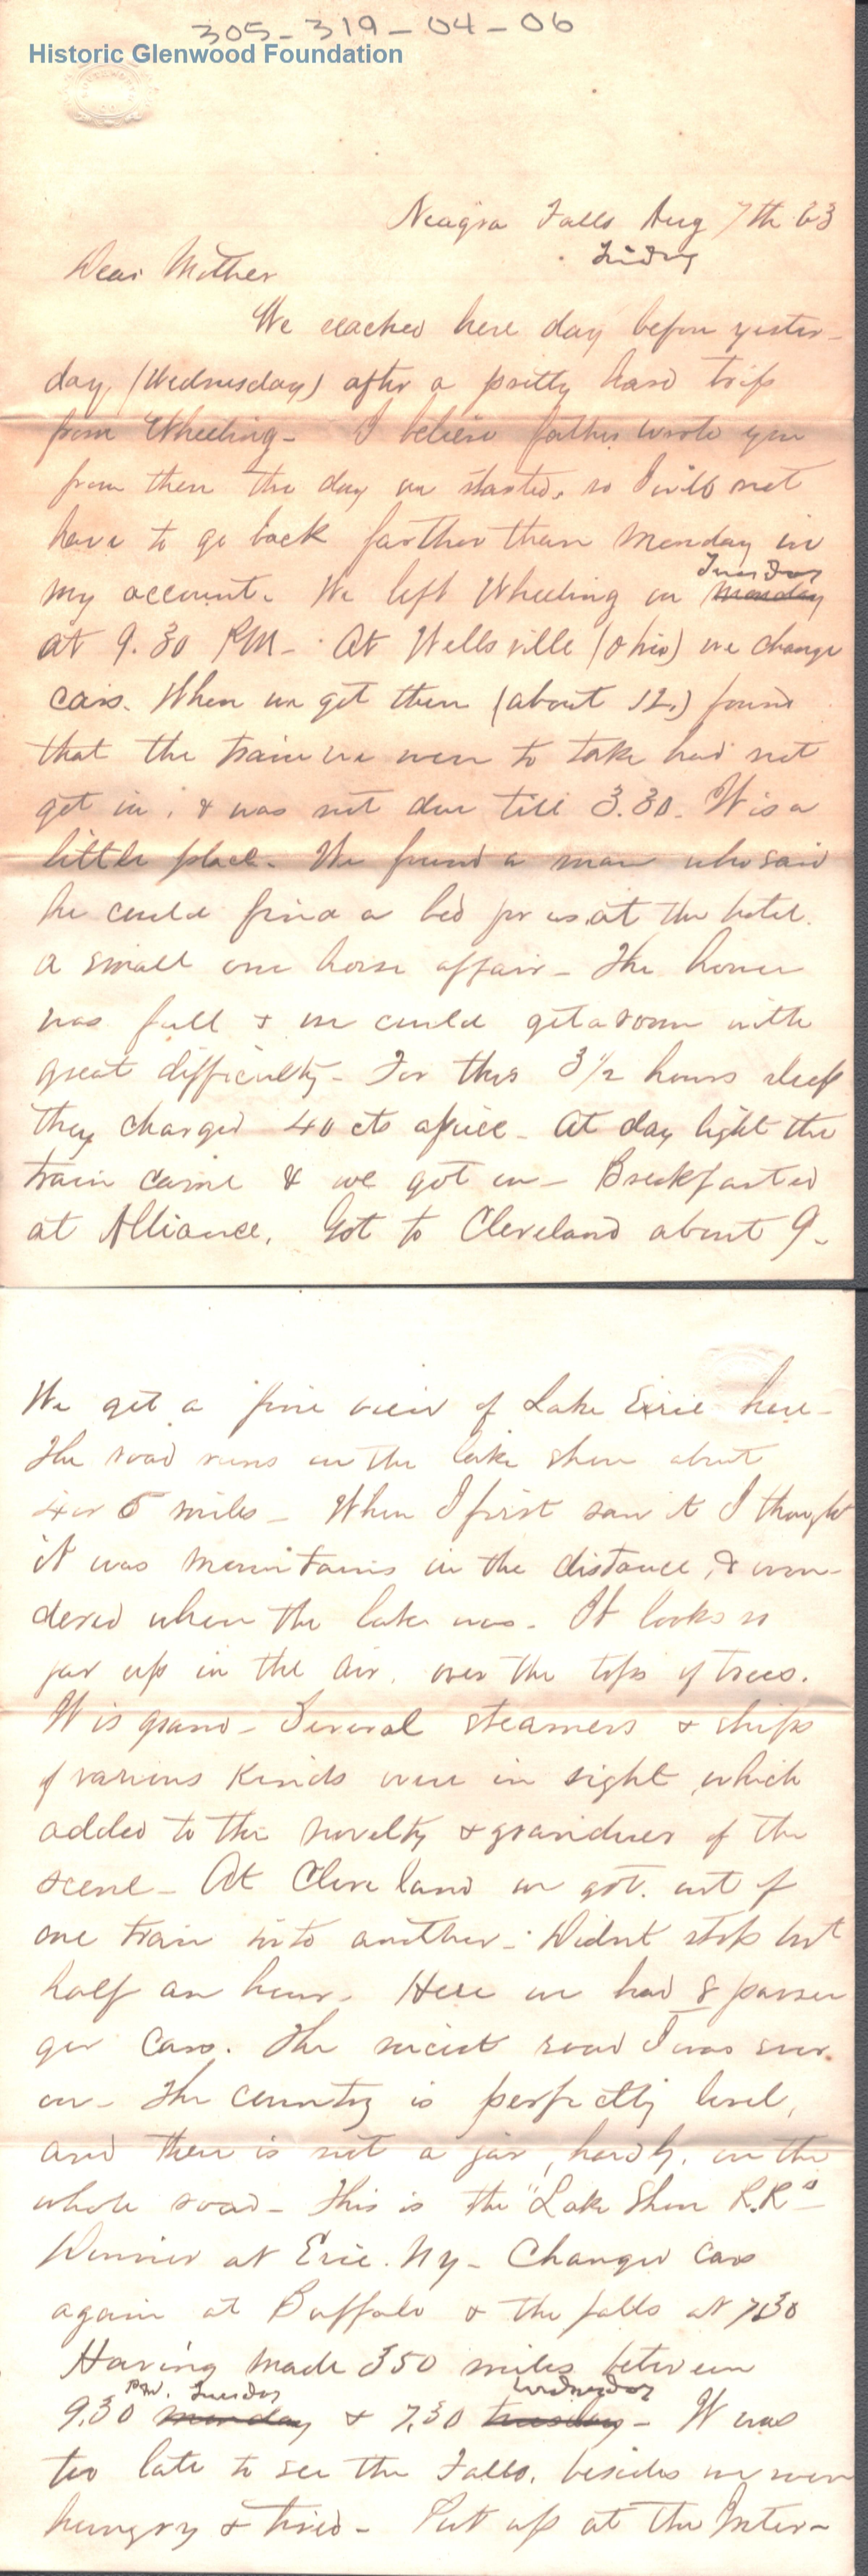 305-319-04-06
Historic Glenwood Foundation
Neagra Falls Aug 7th 63
Friday
Dear Mother
We reached here day before yester-
day, (Wednesday) after a pretty hard trip
from Wheeling- I believe father wrote you
from there the day we started, so I will not
have to go back farther than Monday in
Tuesday
my account. We left Wheeling on Monday
at 9.30 PM- At Wellsville (Ohio) we change
cars. When we got there (about 12,) found
that the train we were to take had not
got in, & was not due till 3.30. It is a
little place. We found a man who said
he could find a bed for us at the hotel.
a small one horse affair- The house
was full & we could get a room with
great difficulty- For this 3 1/2 hours sleep
they charged 40 cts apiece- At day light the
train came & we got in- Breakfasted
at Alliance, Got to Cleveland about 9-
We get a fine view of Lake Eirie here-
The road runs on the lake shore about
4 or 5 miles- When I first saw it I thought
it was mountains in the distance, & won-
dered where the lake was. It looks so
far up in the air, over the tops of trees.
It is grand- Several steamers & ships
of various kinds were in sight, which
added to the novelty & granduer of the
scene- At Cleveland we got out of
one train into another- Didnt stop but
half an hour. Here we had 8 passen
ger cars. The nicest road I was ever
on- The country is perfectly level,
and there is not a jar, hardly, on the
whole road- This is the "Lake Shore R.R"
Dinner at Erie. Ny- Changed cars
again at Buffalo & the falls at 7.30
Having made 350 miles between
PM. Tuesday Wednesday
9.30 Monday & 7.30 Tuesday- It was
too late to see the Falls, besides we were
hungry & tired- Put up at the Inter-